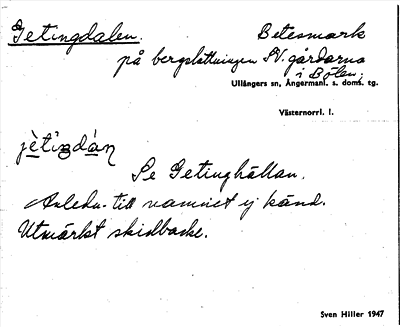 Getingdalen. Betesmark
på bergsluttningen SV. gårdarna
i Bölen;
Ullångers sn, Ångermanl. s. doms. tg.
Västernorrl. l.
jètiŋdán
Se Getinghällan.
Anledn. till namnet ej känd.
Utmärkt skidbacke.
Sven Hiller 1947